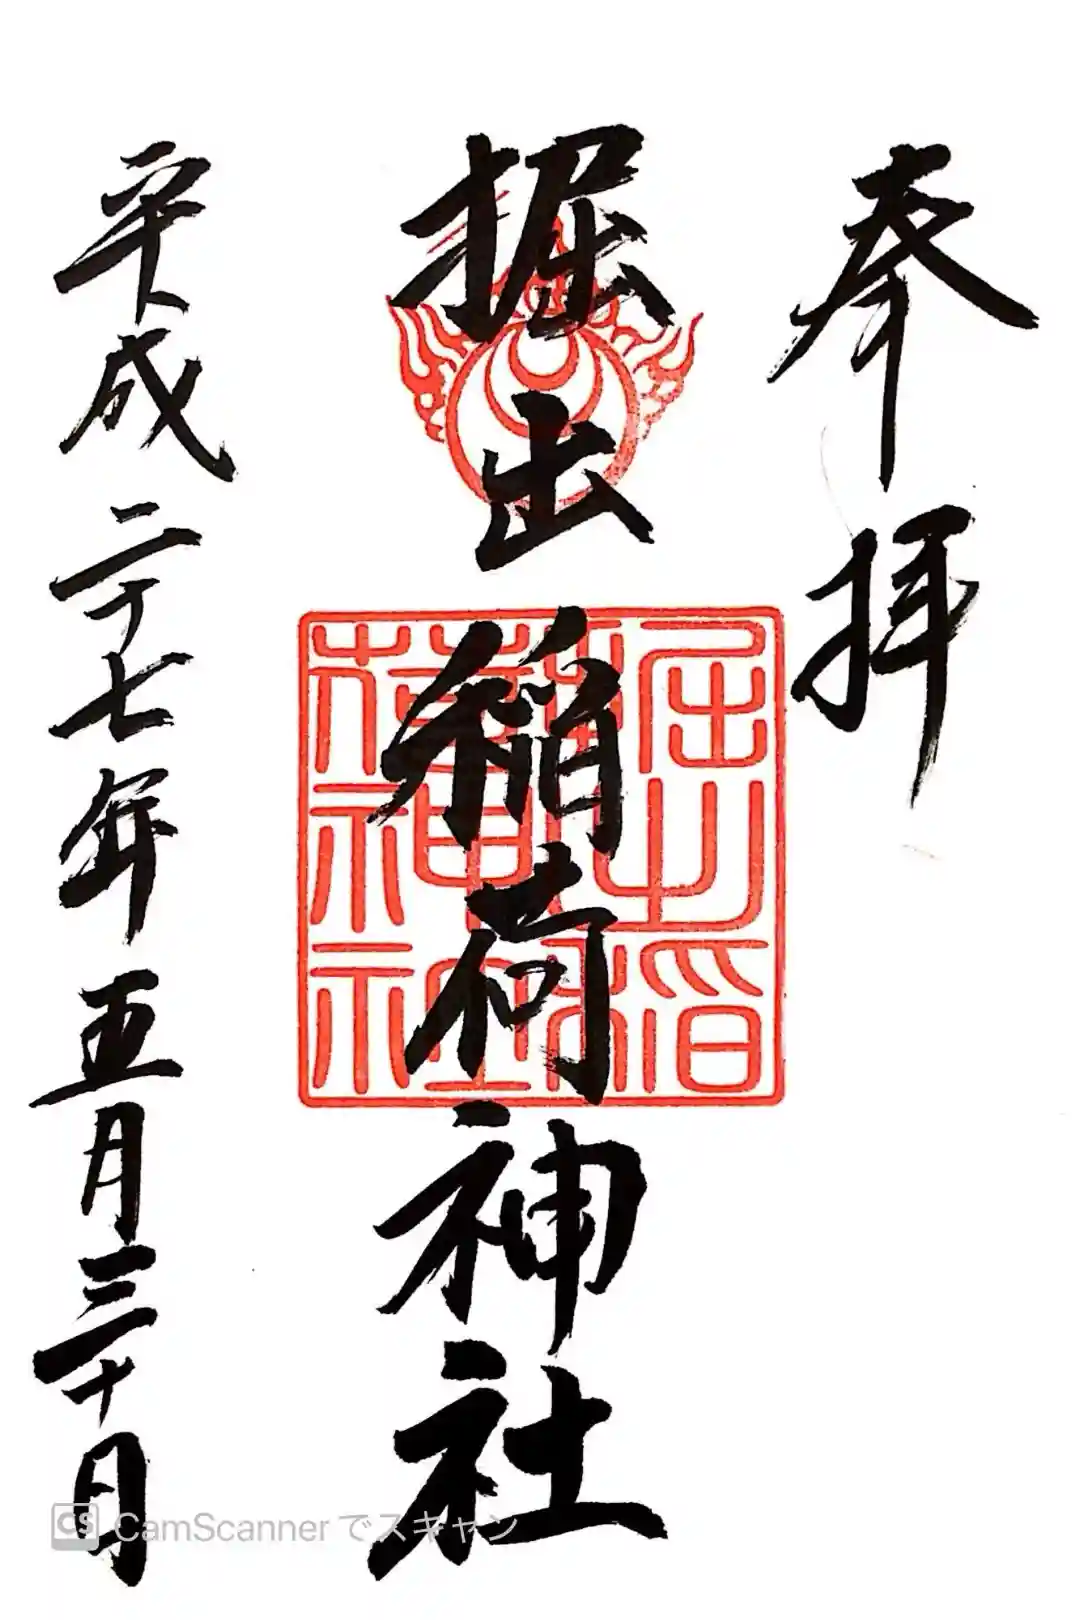 奉拝
掘出稲荷神社
平成二十七年五月三十日
CamScannerでスキャン